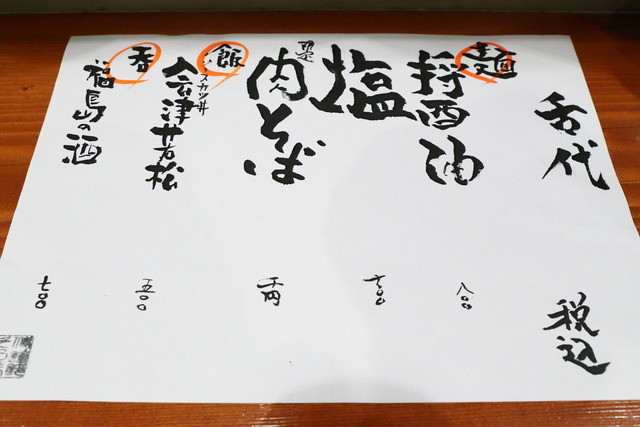 舌代
税込
麺
醤油
八〇〇
塩
限定
肉そば
千円
飯
ソースカツ丼
会津若松
五〇〇
呑
福島の酒
七〇〇